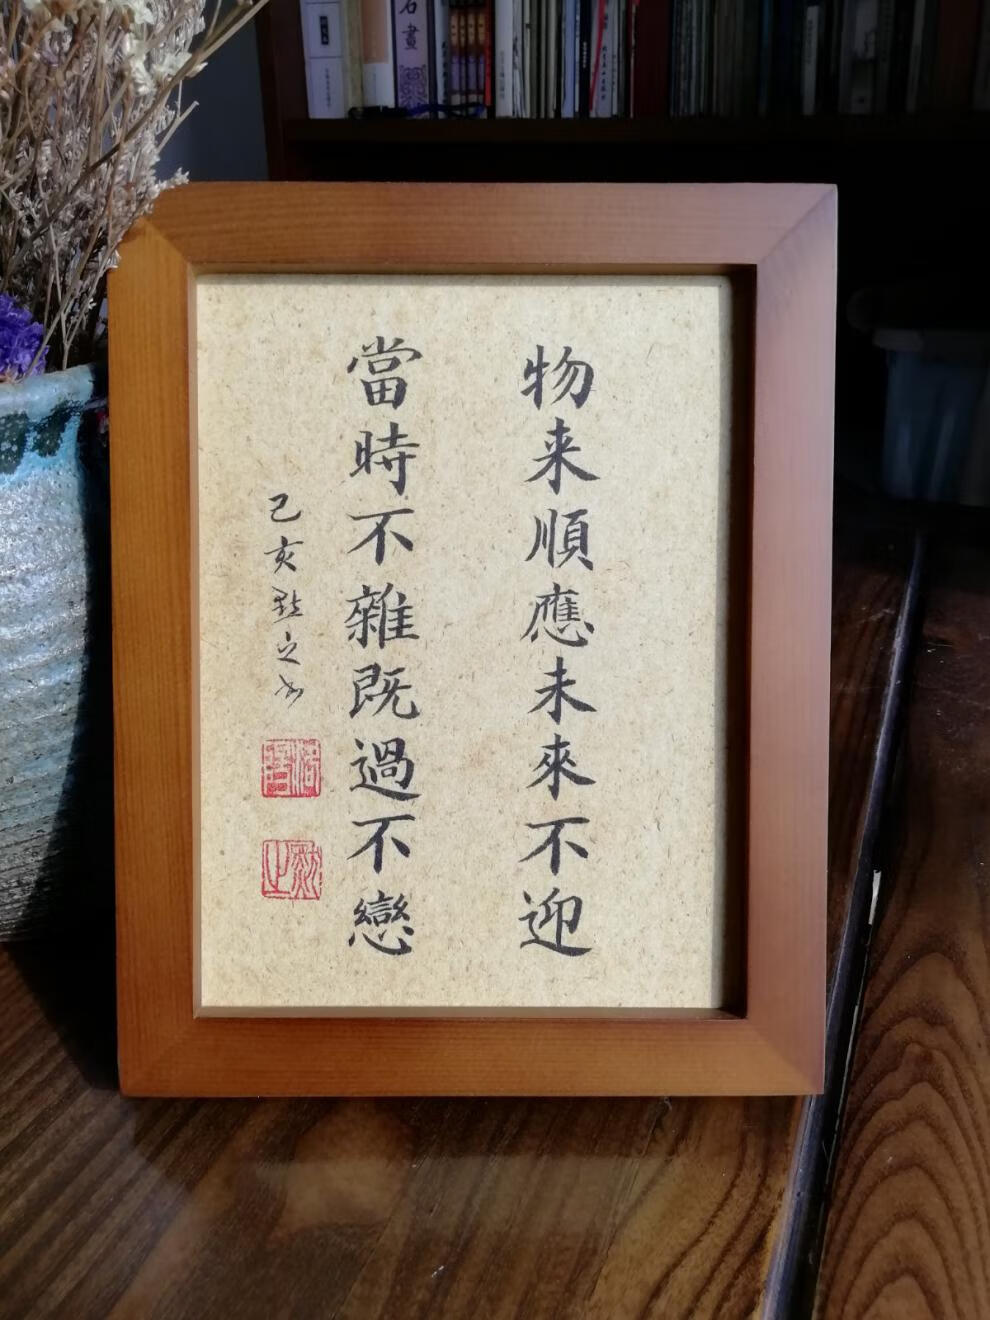 物来順應未來不迎
當時不雜既過不戀
己亥點之书
畫